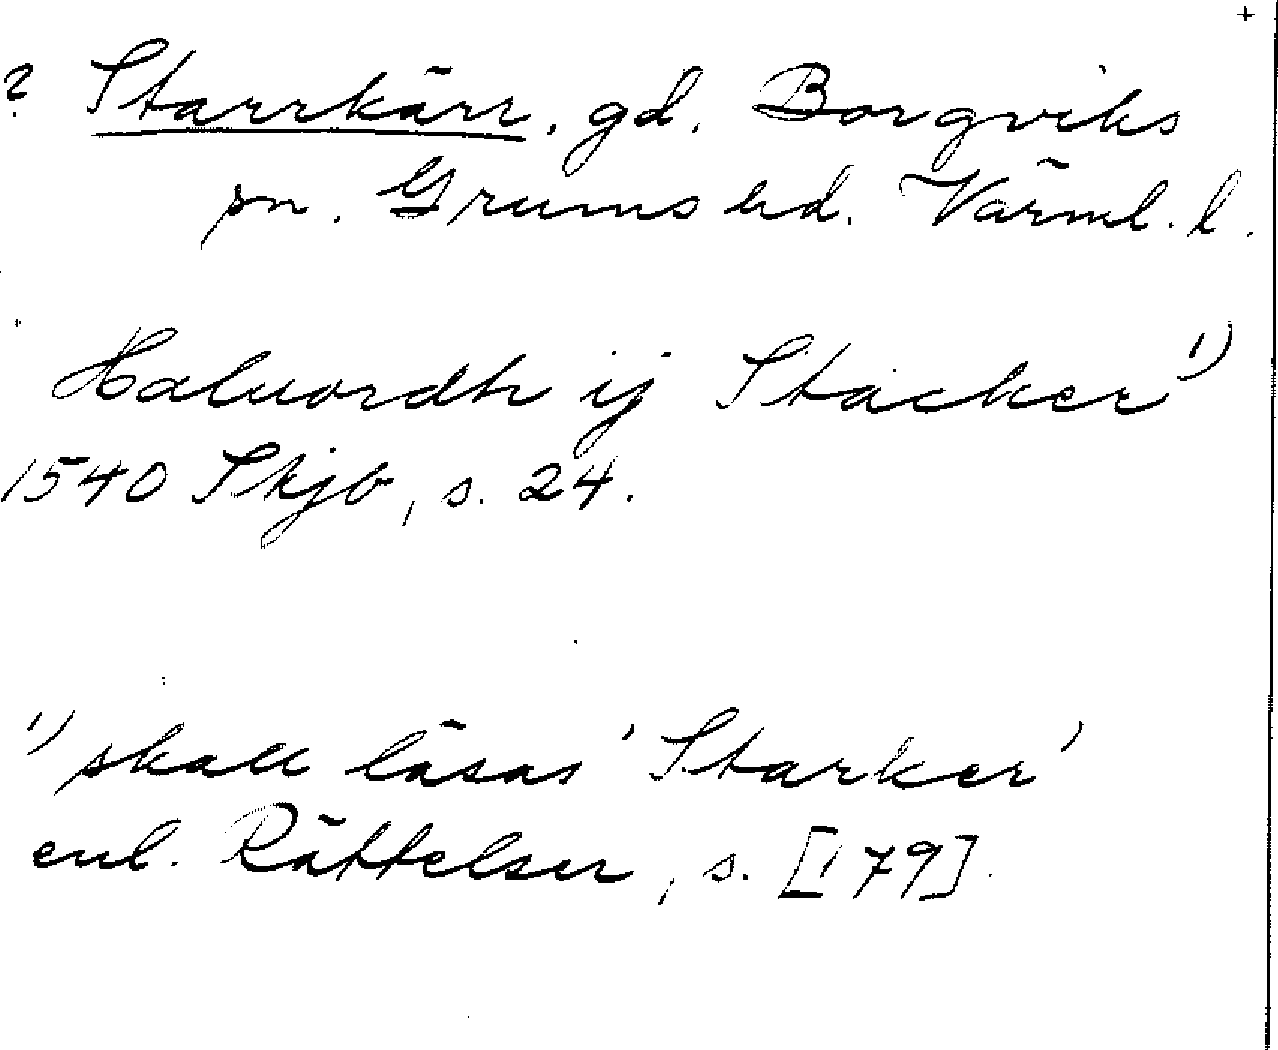 +
? Starrkärr, gd, Borgviks
sn. Grums hd. Värml. l.
Haluordh ij Stacker ¹)
1540 Skjb, s. 24.
¹) skall läsas 'Starker'
enl. Rättelser, s. [179].